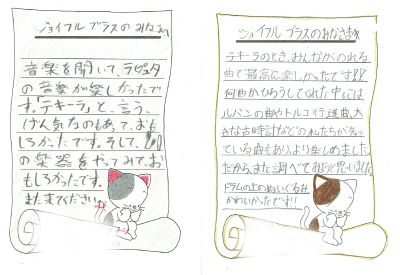 ジョイフル ブラスの みなさまへ
音楽を聞いて、ラピュタ
の音楽が楽しかったで
す。「テキーラ」と、言う、
げん気なのもあって、おも
しろかったです。そして、
の楽器をやってみてお
もしろかったです。
またきてください。
ジョイフル ブラスの みなさまへ
テキーラのとき、みんながのれる
曲で最高に楽しかったです!!
何曲かひろうしてくれた中には
ルパンの曲やトルコ行進曲、大
きな古時計などの私たちが知っ
ている曲もありより楽しめました。
だから、また調べてみようと思いました
ドラムの上のぬいぐるみ
かわいかったです!!